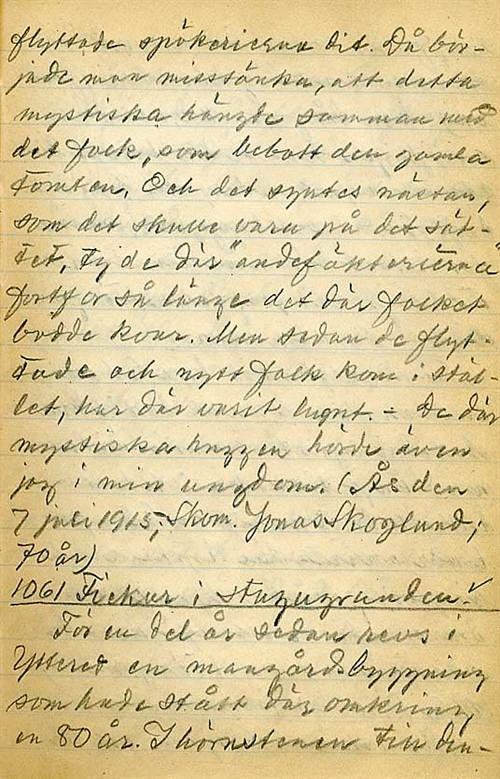 flyttade spökerierna dit. Då bör-
jade man misstänka, att detta
mystiska hängde samman med
det folk, som bebott den gamla
tomten. Och det syntes nästan,
som det skulle vara på det sät-
tet, ty de där "andefäkterierna"
fortfor så länge det där folket
bodde kvar. Men sedan de flyt-
tade och nytt folk kom i stäl-
let, har där varit lugnt. - De där
mystiska huggen hörde även
jag i min ungdom. (Ås den
7 juli 1915; Skom. Jonas Skoglund,
70 år)
1061 Fickur i stugugrunden.
För en del år sedan revs i
Yttered en mangårdsbyggning
som hade stått där omkring
en 80 år. I hörnstenen till den-